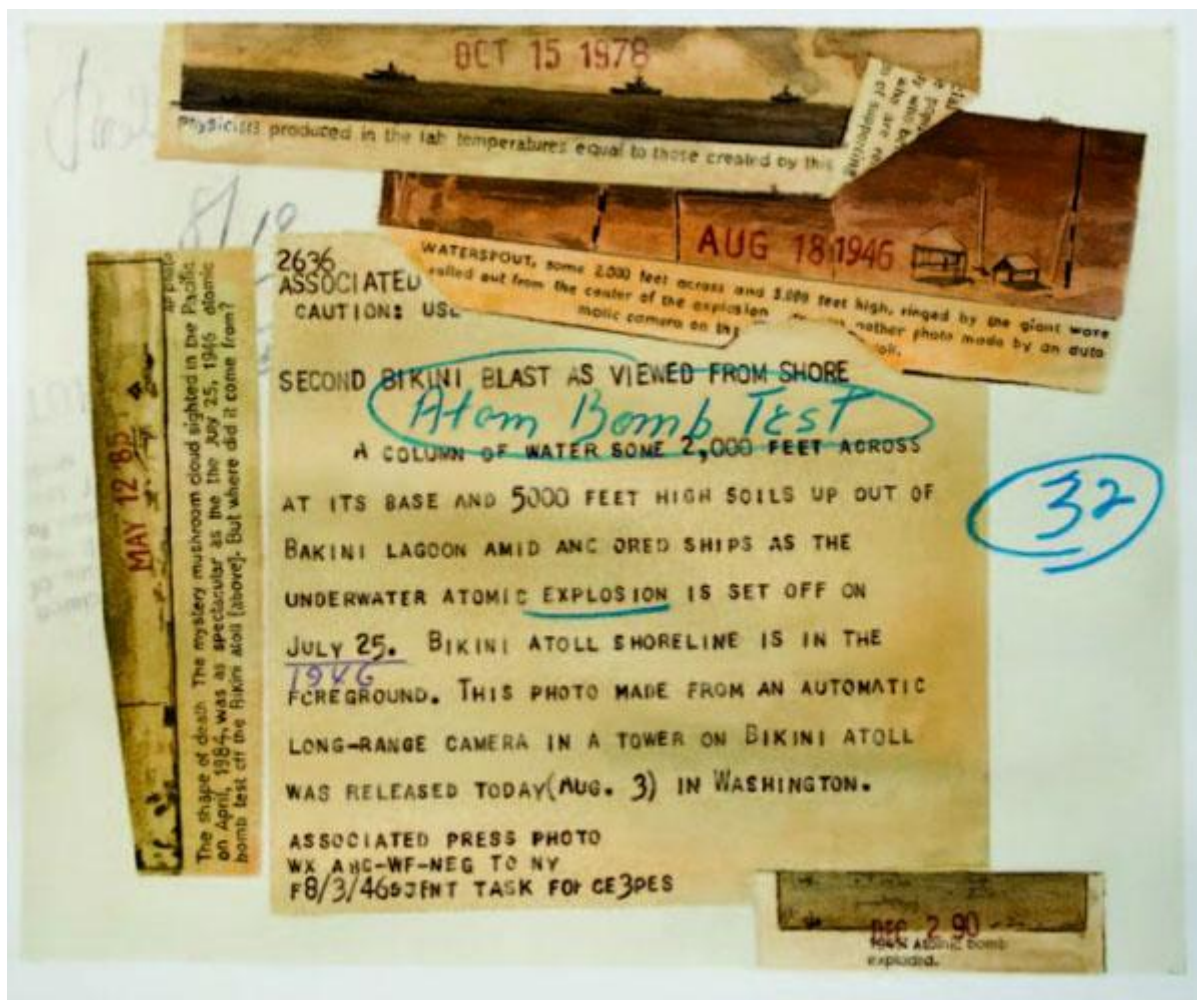 OCT 15 1978
Physicists produced in the lab temperatures equal to those created by this
who are
of supporting
AUG 18 1946
WATERSPOUT, some 2,000 feet across and 5,000 feet high, ringed by the giant wave
rolled out from the center of the explosion another photo made by an auto
matic camera on the
8/10
2636
ASSOCIATED
CAUTION: USE
SECOND BIKINI BLAST AS VIEWED FROM SHORE
Atom Bomb Test
A COLUMN OF WATER SOME 2,000 FEET ACROSS
AT ITS BASE AND 5000 FEET HIGH SOILS UP OUT OF
BAKINI LAGOON AMID ANC ORED SHIPS AS THE
UNDERWATER ATOMIC EXPLOSION IS SET OFF ON
JULY 25. BIKINI ATOLL SHORELINE IS IN THE
1946
FOREGROUND. THIS PHOTO MADE FROM AN AUTOMATIC
LONG-RANGE CAMERA IN A TOWER ON BIKINI ATOLL
WAS RELEASED TODAY(AUG. 3) IN WASHINGTON.
ASSOCIATED PRESS PHOTO
WX NEG TO NY
F8/3/46 TASK
32
MAY 12 '85
AP photo
The shape of death The mystery mushroom cloud sighted in the Pacific
on April, 1984, was as spectacular as the the July 25, 1946 atomic
bomb test off the Bikini atoll [above]. But where did it come from?
DEC 2 90
1946 Atomic bomb
exploded.